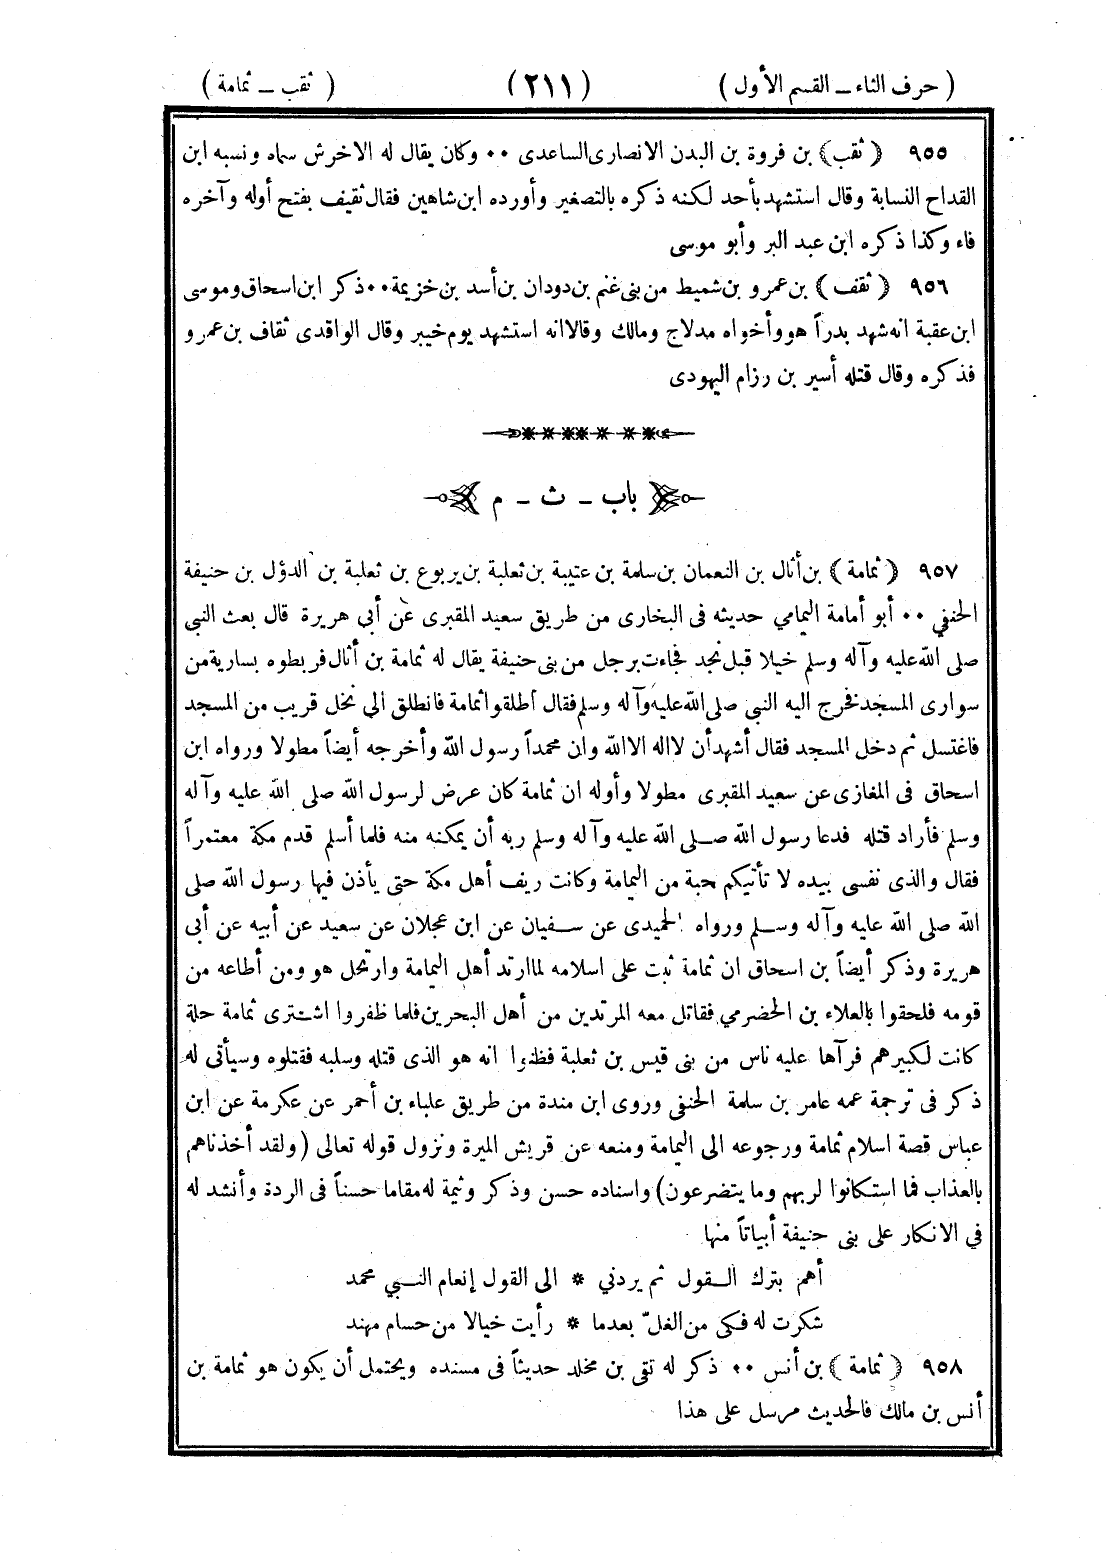 ( حرف الثاء ــ القسم الأول ) (٢١١) ( ثقب ــ ثمامة )
٩٥٥ ﴿ ثقب ﴾ بن فروة بن البدن الانصارى الساعدى ٠٠ وكان يقال له الاخرش سماه ونسبه ابن
القداح النسابة وقال استشهد بأحد لكنه ذكره بالتصغير وأورده ابن شاهين فقال ثقيف بفتح أوله وآخره
فاء وكذا ذكره ابن عبد البر وأبو موسى
٩٥٦ ﴿ ثقف ﴾ بن عمرو بن شميط من بنى غنم بن دودان بن أسد بن خزيمة ٠٠ ذكر ابن اسحاق وموسى
ابن عقبة انه شهد بدراً هو وأخواه مدلاج ومالك وقالا انه استشهد يوم خيبر وقال الواقدى ثقاف بن عمرو
فذكره وقال قتله أسير بن رزام اليهودى
باب ـ ث ـ م
٩٥٧ ﴿ ثمامة ﴾ بن أثال بن النعمان بن سلمة بن عتيبة بن ثعلبة بن يربوع بن ثعلبة بن الدؤل بن حنيفة
الحنفي ٠٠ أبو أمامة اليمامي حديثه فى البخارى من طريق سعيد المقبرى عن أبي هريرة قال بعث النبي
صلى الله عليه وآله وسلم خيلا قبل نجد فجاءت برجل من بنى حنيفة يقال له ثمامة بن أثال فربطوه بسارية من
سوارى المسجد فخرج اليه النبي صلى الله عليه وآله وسلم فقال أطلقوا ثمامة فانطلق الى نخل قريب من المسجد
فاغتسل ثم دخل المسجد فقال أشهد أن لا اله الا الله وان محمداً رسول الله وأخرجه أيضاً مطولا ورواه ابن
اسحاق فى المغازى عن سعيد المقبرى مطولا وأوله ان ثمامة كان عرض لرسول الله صلى الله عليه وآله
وسلم فأراد قتله فدعا رسول الله صلى الله عليه وآله وسلم ربه أن يمكنه منه فلما أسلم قدم مكة معتمراً
فقال والذى نفسى بيده لا تأتيكم حبة من اليمامة وكانت ريف أهل مكة حتى يأذن فيها رسول الله صلى
الله صلى الله عليه وآله وسلم ورواه الحميدى عن سفيان عن ابن عجلان عن سعيد عن أبيه عن أبى
هريرة وذكر أيضاً بن اسحاق ان ثمامة ثبت على اسلامه لما ارتد أهل اليمامة وارتحل هو ومن أطاعه من
قومه فلحقوا بالعلاء بن الحضرمي فقاتل معه المرتدين من أهل البحرين فلما ظفروا اشترى ثمامة حلة
كانت لكبيرهم فرآها عليه ناس من بنى قيس بن ثعلبة فظنوا انه هو الذى قتله وسلبه فقتلوه وسيأتى له
ذكر فى ترجمة عمه عامر بن سلمة الحنفى وروى ابن مندة من طريق علباء بن أحمر عن عكرمة عن ابن
عباس قصة اسلام ثمامة ورجوعه الى اليمامة ومنعه عن قريش الميرة ونزول قوله تعالى ( ولقد أخذناهم
بالعذاب فما استكانوا لربهم وما يتضرعون ) واسناده حسن وذكر وثيمة له مقاما حسناً فى الردة وأنشد له
في الانكار على بنى حنيفة أبياتاً منها
أهم بترك القول ثم يردني * الى القول إنعام النبي محمد
شكرت له فكى من الغلّ بعدما * رأيت خيالا من حسام مهند
٩٥٨ ﴿ ثمامة ﴾ بن أنس ٠٠ ذكر له تقى بن مخلد حديثاً فى مسنده ويحتمل أن يكون هو ثمامة بن
أنس بن مالك فالحديث مرسل على هذا